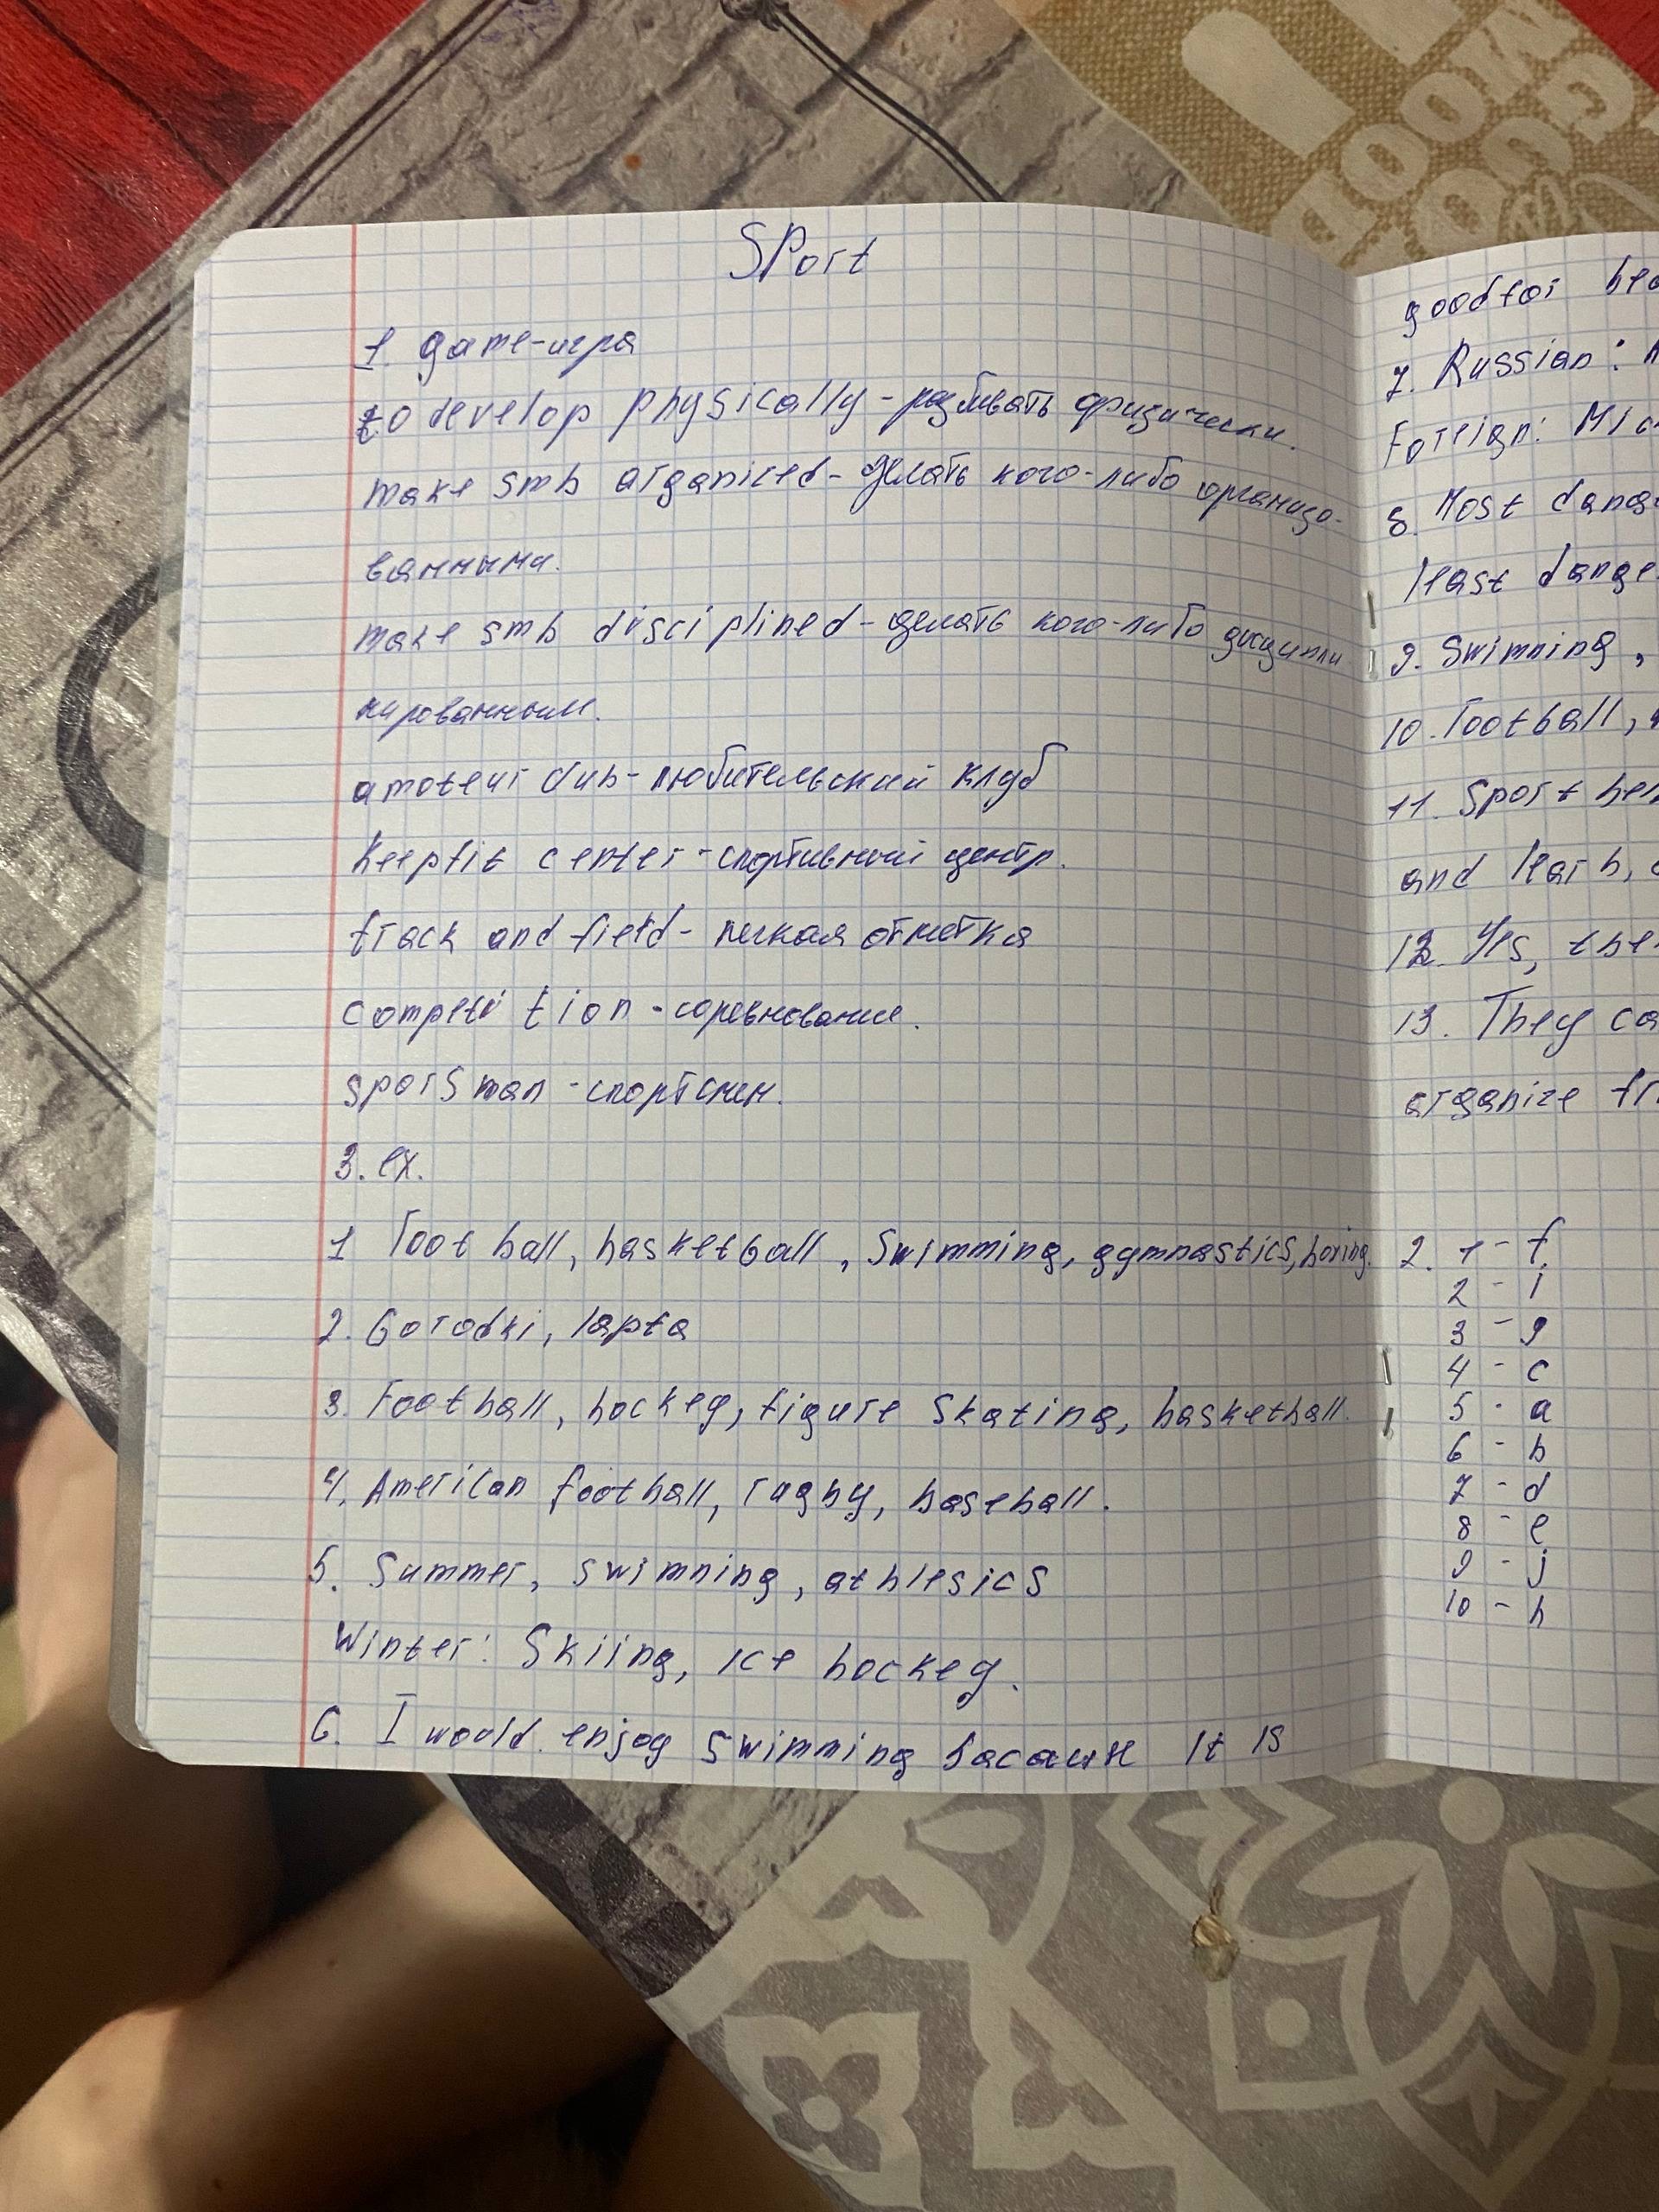 SPort
1 game-игра
to develop physically-развивать физически.
make smb organiced-делать кого-либо организо-
ванными.
make smb disciplined-делать кого-либо дисципли
нированным.
amoteur club-любительский клуб
keepfit center-спортивный центр.
track and field- легкая отметка
competition-соревнование.
sporsman-спортсмен.
3. ex.
1 Football, basketball, Swimming, gymnastics, boxing.
2. Gorodki, lapta
3. Football, hockey, figure Skating, basketball.
4. American football, rugby, baseball.
5. Summer, swimning, athlesics
Winter: Skiing, ice hockey.
6. I would enjoy Swimming bacause It is
goodfor hea
7. Russian: A
Foreign: Mic
8. Most dange
least dange
9. Swimning,
10. Football,
11. Sport hel
and learn,
12. Yes, the
13. They ca
organize fr
2. 1 - f.
2 - i
3 - g
4 - c
5 - a
6 - b
7 - d
8 - e
9 - j
10 - h